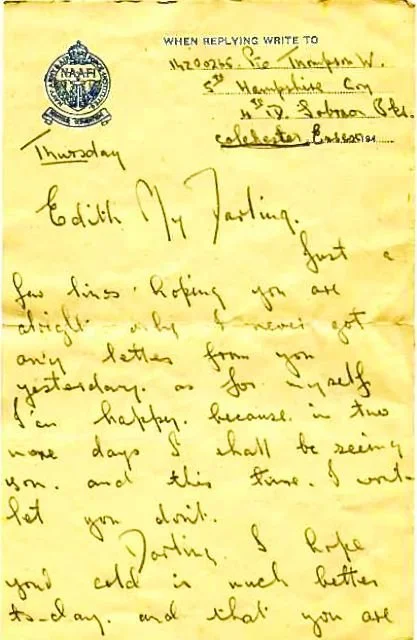 WHEN REPLYING WRITE TO
NAAFI
14200265 Pte Thompson W.
5th Hampshire Coy
4th D.
Colchester Essex 194
Thursday
Edith My Darling.
Just a
few lines hoping you are
alright only I never got
any letter from you
yesterday. as for myself
I'm happy. because in two
more days I shall be seeing
you. and this time. I wont
let you don't.
Darling. I hope
your cold is much better
to-day. and that you are